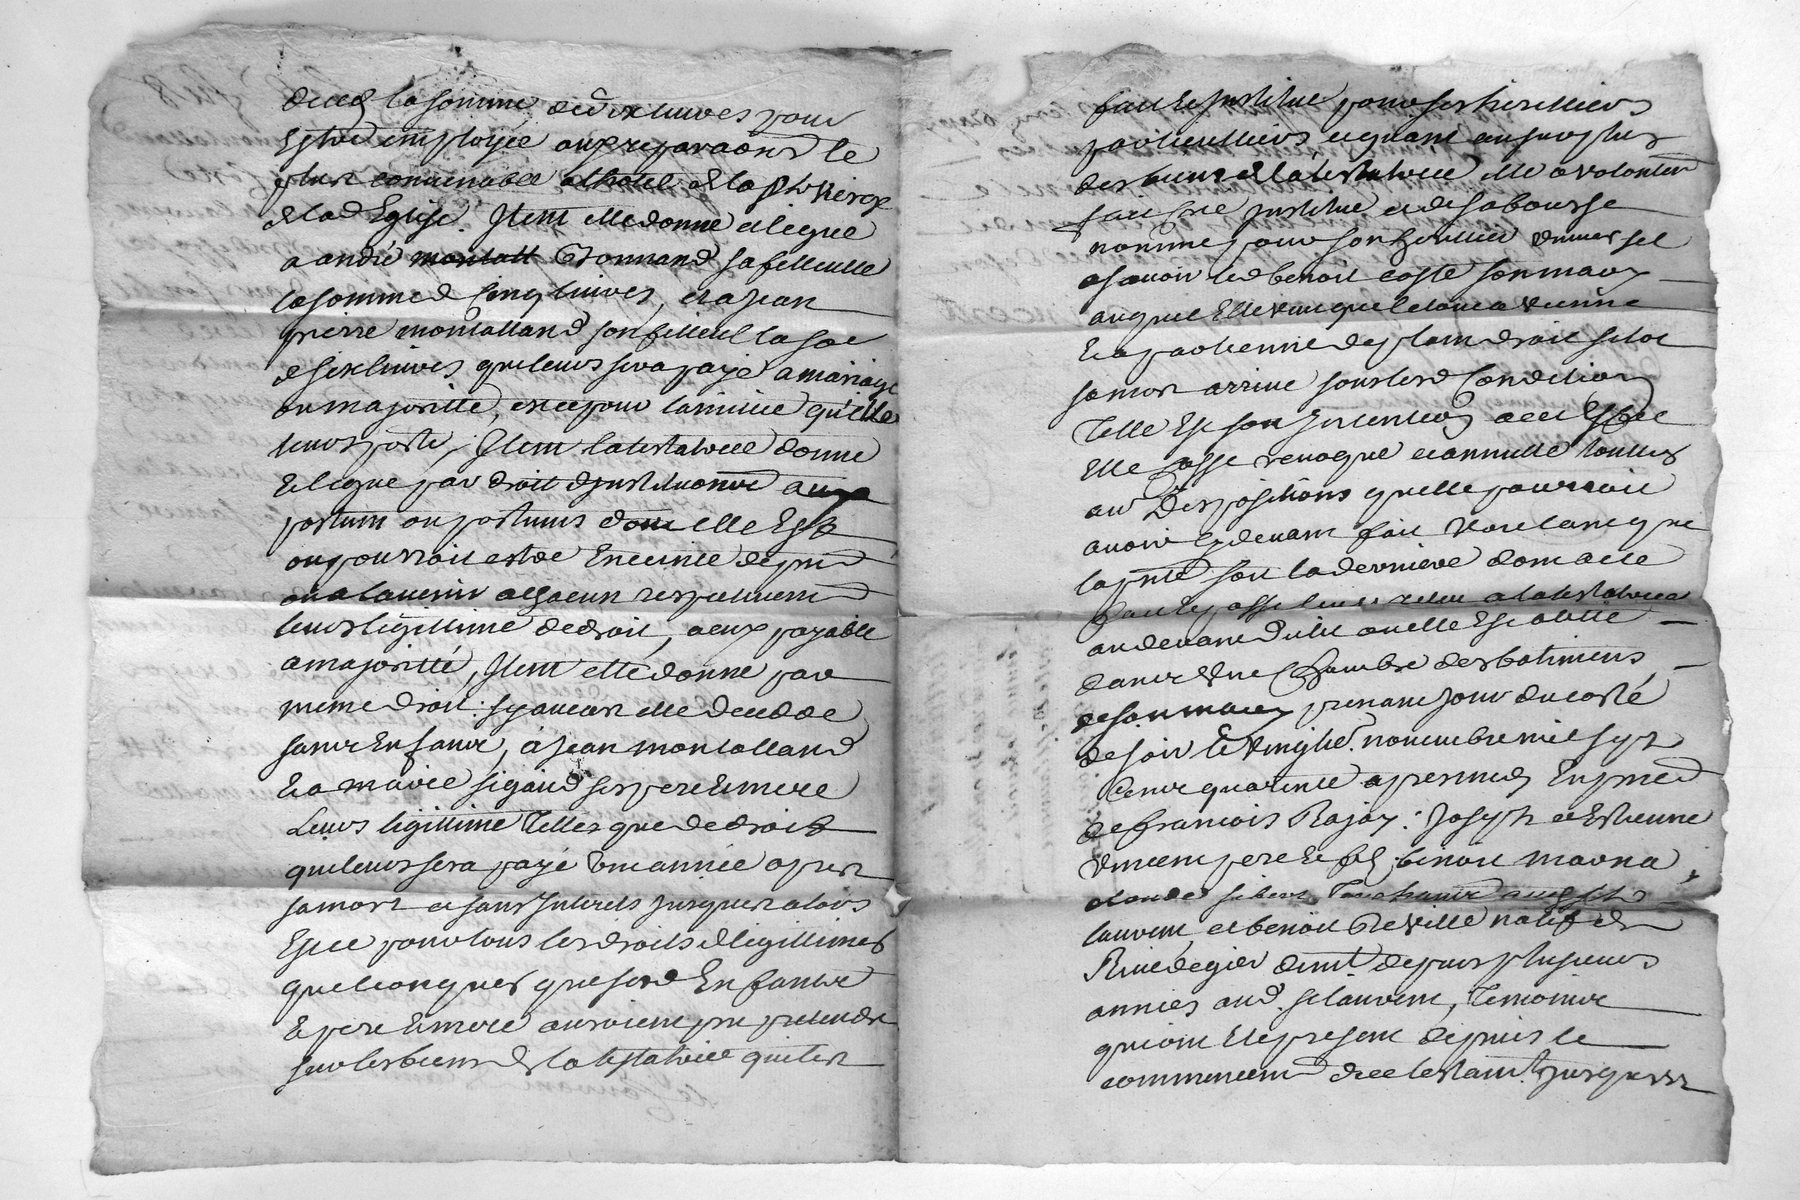 la somme de dix livres pour
Estre employée aux reparaõns le
plus convenable a lhotel de la Ste vierge
de lad Eglise. Item elle donne et legue
a andré montall Gonnand sa filleulle
la somme de cinq livres, et a jean
pierre montalland son filleul la soe
de six livres que leurs sera payé a mariage
ou majoritté, et ce pour lamitié qu'elle
leurs porte, Item latestatrice donne
Et legue par droit d'institutionne aux
postum ou postums dont elle Est
ou pourroit estre Enceinte depnt
ou a lavenir a chacun respectivemt
leurs legittime de droit, a eux payable
a majoritté, Item elle donne par
meme droit : sy aucas elle decedde
sans Enfans, à Jean montalland
Et a marie sigaud ses pere Et mere
Leurs legittime Telles que de droit
que leurs sera payé Une année apres
sa mort et sans Interets jusques alors
Et ce pour tous les droits de legittimes
quelconques que sesd Enfants
Et pere Et mere auroient pu pretendre
sur les biens de la testatrice quiles
fait Et Institue pour ses heritiers
particulliers et quant au surplus
des biens de latestatrice elle a volontem
fait Cree Institue et de sa bousse
nommé pour son heritier Universel
a savoir led benoit coste son mary
auquel Elle veut que le tout advienne
Et apartienne de plain droit sitot
sa mort arrive sous lesd Conditions
Telle Est son Intention a cet Effet
Elle Casse revoque et annulle touttes
au Dispositions quelle pourroit
avoir cydevant fait Voulant que
la pnte soit la derniere dont acte
fait Et passé leu Et releu a latestatrice
au devant du lit ou elle Est alitée
dans Une Chambre des batimens
de son mary prenant jour du costé
de soir le Vingte. novembre mil sept
Cent quarente apres midy En pnce
de francois Rajay : Joseph et Estienne
Vincent pere Et fils benoit marna,
claude
laurent et benoit Reville natif de
Rivedegier demt depuis plusieurs
années aud. St laurent, Temoins
qui ont Eté present depuis le
commencemt dece testamt jusques